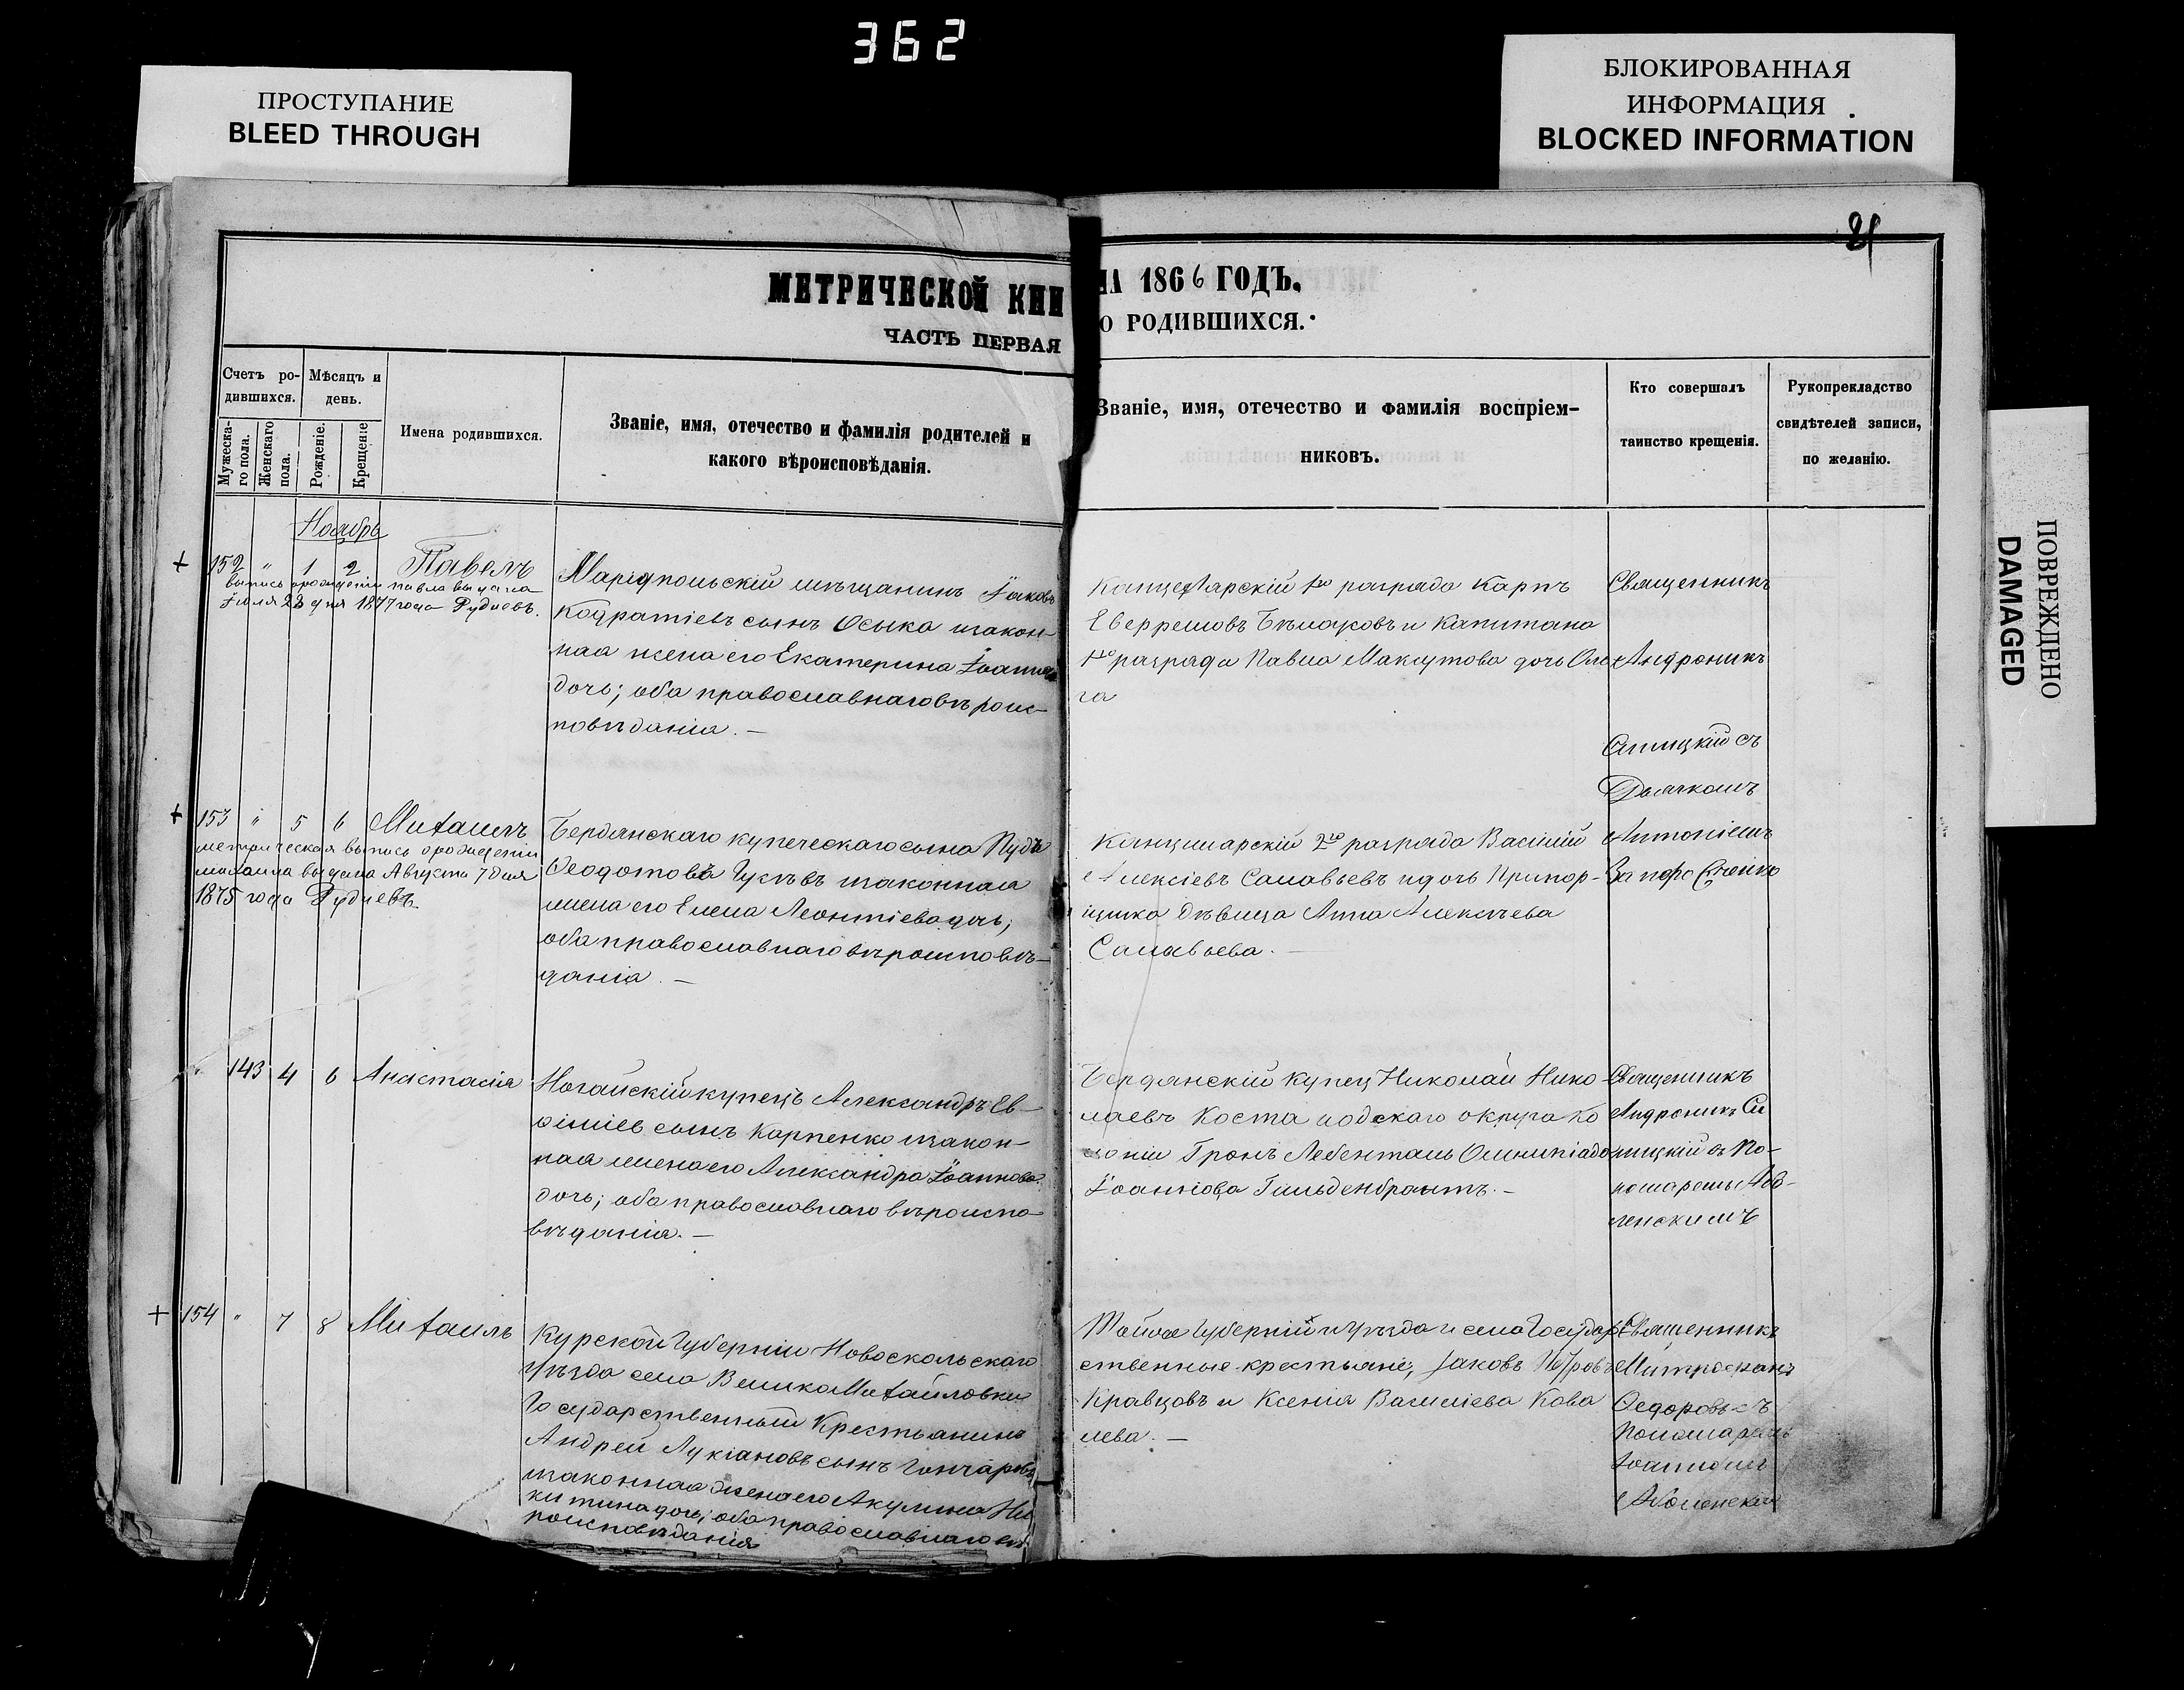 362
ПРОСТУПАНИЕ
BLEED THROUGH
БЛОКИРОВАННАЯ
ИНФОРМАЦИЯ
BLOCKED INFORMATION
ПОВРЕЖДЕНО
DAMAGED
МЕТРИЧЕСКОЙ КНИ
НА 1866 ГОДЪ.
ЧАСТЬ ПЕРВАЯ
О РОДИВШИХСЯ.
Счетъ ро-
дившихся.
Мѣсяцъ и
день.
Мужеска-
го пола.
Женскаго
пола.
Рожденіе.
Крещеніе
Имена родившихся.
Званіе, имя, отечество и фамилія родителей и
какого вѣроисповѣданія.
Званіе, имя, отечество и фамилія воспріем-
никовъ.
Кто совершалъ
таинство крещенія.
Рукоприкладство
свидѣтелей записи,
по желанію.
Ноябрь
152 " 1 2 Павелъ
выпись о рождении Павла выдана
Іюля 23 дня 1877 года Рудневъ.
Маріупольскій мѣщанинъ Іаковъ
Кодратіевъ сынъ Осыка изакон-
ная жена его Екатерина Іоаннова
дочь; оба православнаго вѣроис-
повѣданія. —
Канцелярскій 1го разряда Карпъ
и Капитана
1го разряда Павла Максутова дочь Оль
га
Священникъ
Андроникъ
Синицкій съ
Дьячкомъ
Антоніемъ
Запорожченко
153 " 5 6 Михаилъ
метрическая выпись о рождении
михаила выдана Августа 7 дня
1875 года Рудневъ.
Бердянскаго купеческаго сына Пудъ
Ѳеодотовъ изаконная
жена его Елена Леонтіева дочь,
оба православнаго вѣроисповѣ-
данія. —
Канцелярскій 2го разряда Василій
Алексіевъ Самавьевъ и дочь Прапор-
щика дѣвица Анна Алексѣева
Самавьева. —
143 4 6 Анастасія
Ногайскій купецъ Александръ Ев-
ѳиміев сынъ Карпенко изакон-
ная жена его Александра Іоаннова
дочь; оба православнаго вѣроиспо-
вѣданія. —
Бердянскій купец Николай Нико-
лаевъ Коста и одскаго округа ко
лоніи Гронъ Лебенталь Олимпіада
Іоаннова Гильденбрантъ. —
Священникъ
Андроникъ Си
ницкій съ По-
номаремъ Або-
ленскимъ
154 " 7 8 Михаилъ
Курской Губерніи Новоскольскаго
Уѣзда села ВеликоМихайловки
Государственный Крестьянинъ
Андрей Лукіановъ сынъ Гончаровъ
изаконная жена его Акулина Ни
китина дочь; оба православнаго вѣ
роисповѣданія
Тойже Губерніи и Уѣзда и села Государ
ственные крестьяне, Іаковъ Петровъ
Кравцовъ и Ксенія Василіева Кова
лева. —
Священникъ
Митрофанъ
Ѳедоровъ съ
Пономаремъ
Іоанномъ
Аболенскимъ